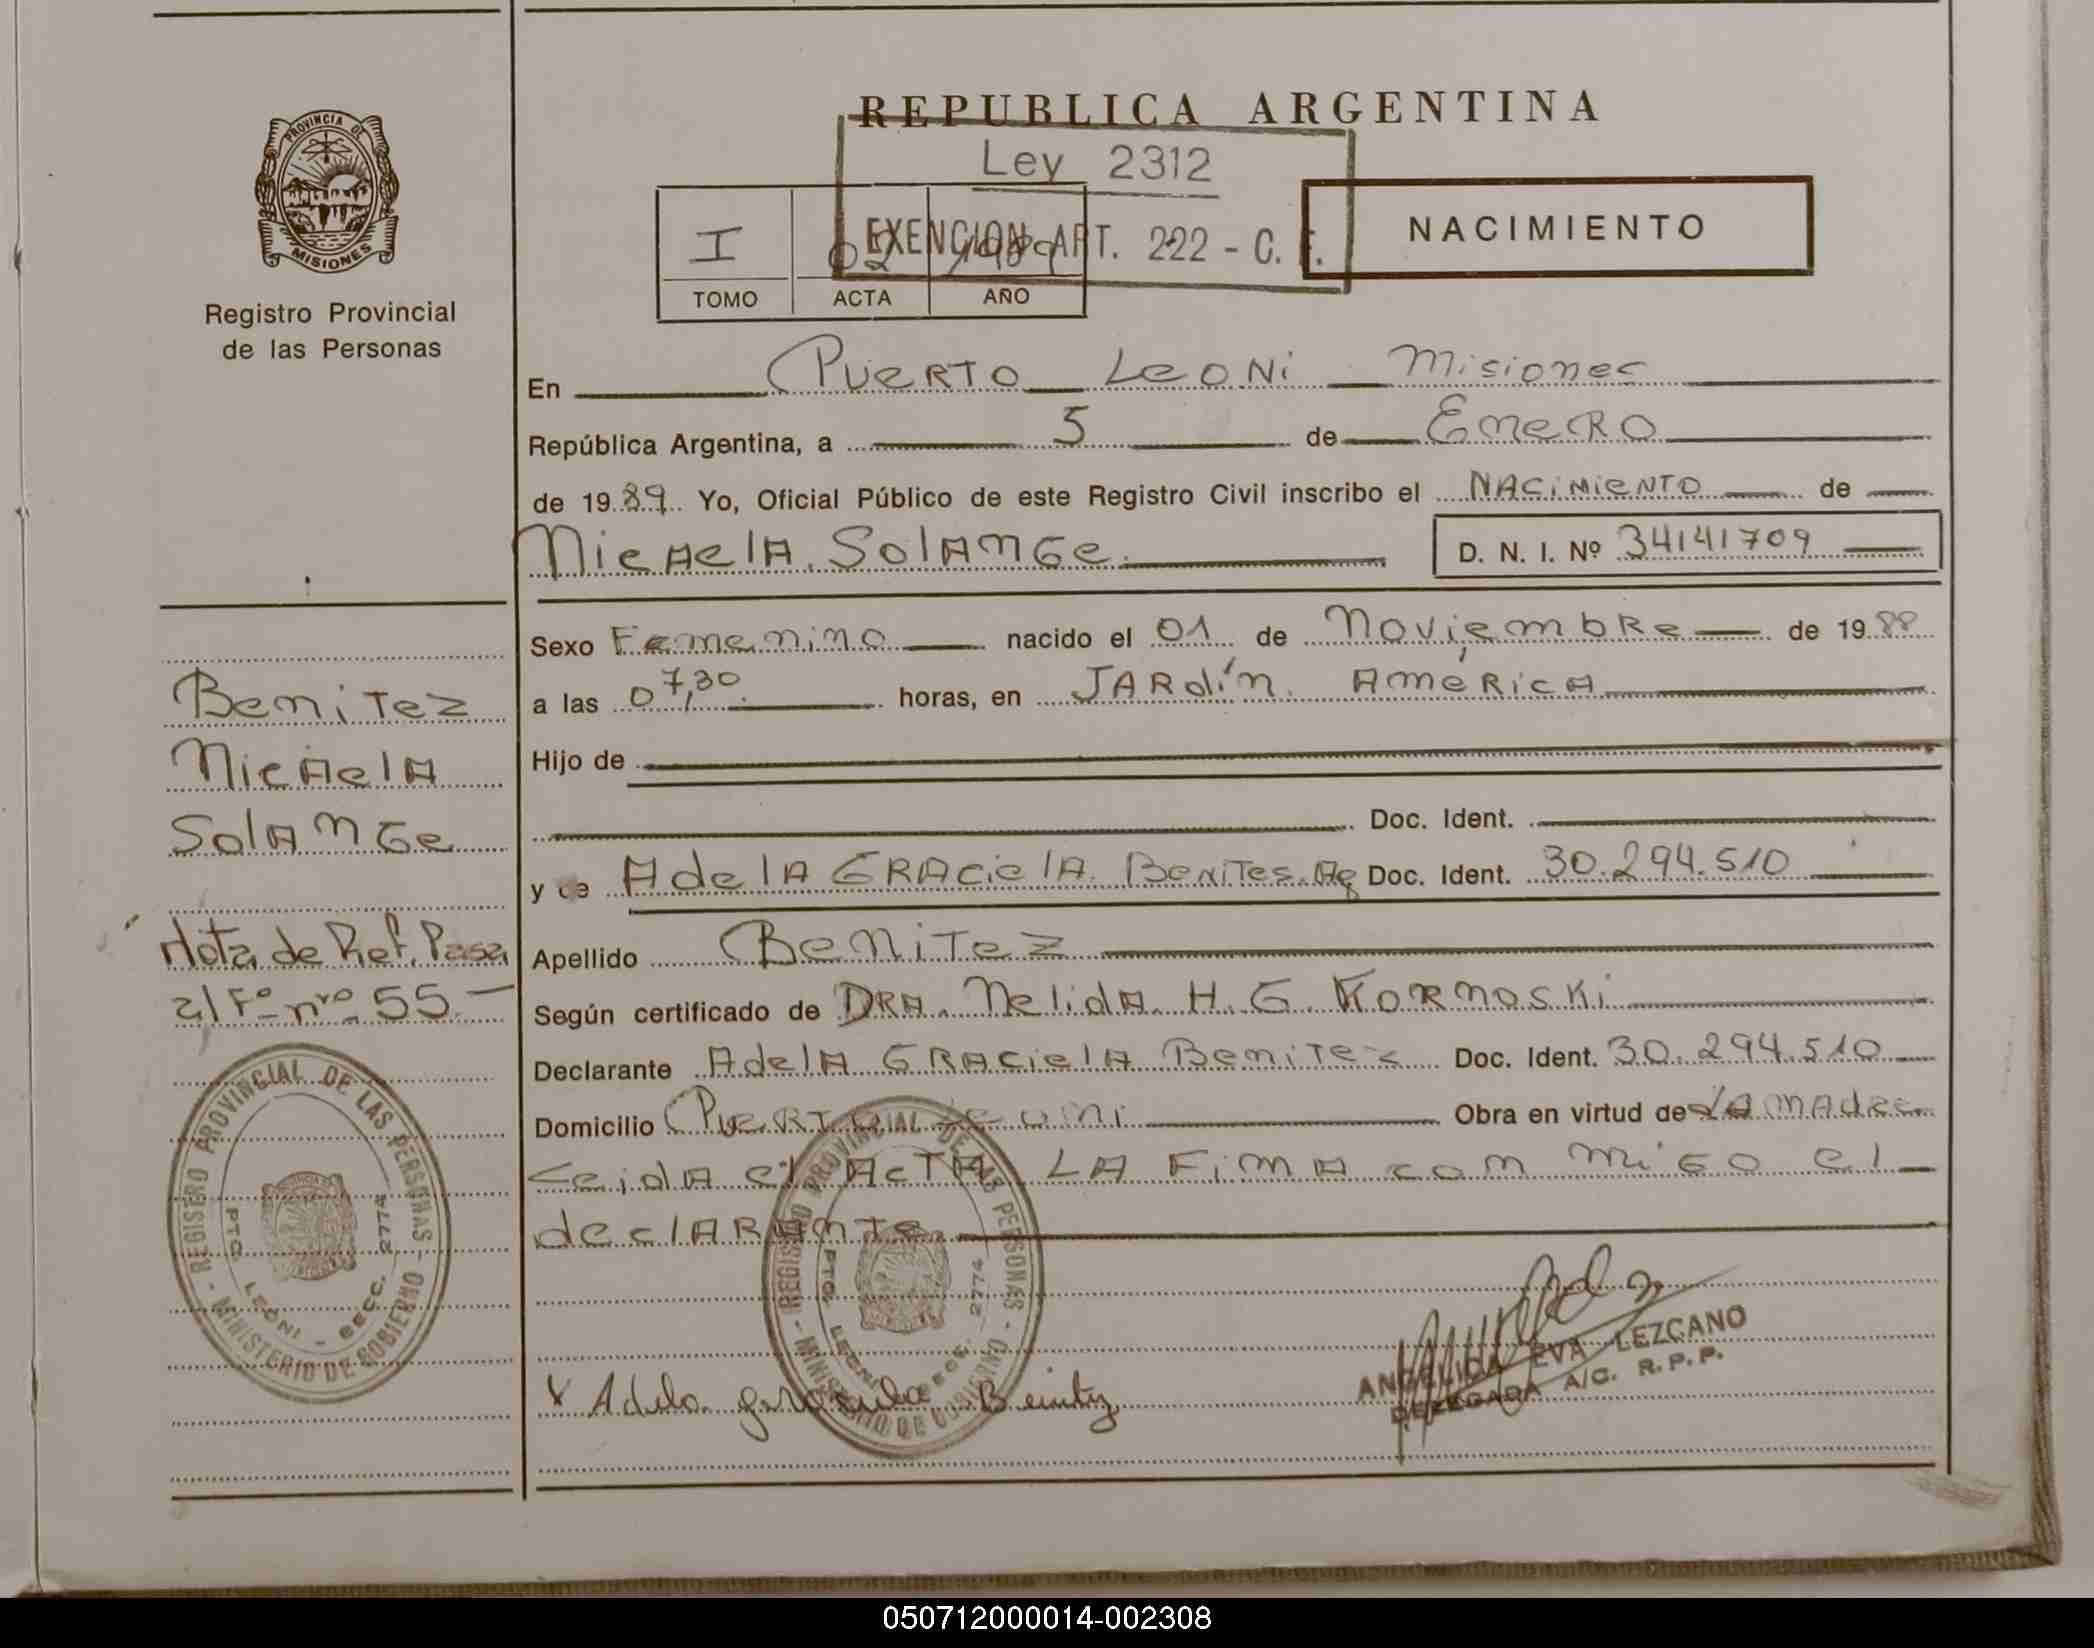 REPUBLICA ARGENTINA
Ley 2312
EXENCION ART. 222 - C. F.
NACIMIENTO
I 02 1989
TOMO ACTA AÑO
PROVINCIA DE
MISIONES
Registro Provincial
de las Personas
En Puerto Leoni Misiones
República Argentina, a 5 de Enero
de 1989 Yo, Oficial Público de este Registro Civil inscribo el Nacimiento de
Micaela Solange D. N. I. Nº 34141709
Sexo Femenino nacido el 01 de Noviembre de 1988
a las 07,30 horas, en Jardín América
Hijo de
Doc. Ident.
y de Adela Graciela Benites. Ag Doc. Ident. 30.294.510
Apellido Benitez
Según certificado de Dra. Nelida H. G. Kornoski
Declarante Adela Graciela Benitez Doc. Ident. 30.294.510
Domicilio Puerto Leoni Obra en virtud de La madre
Leida el Acta La Fima con migo el
declarante
Benitez
Micaela
Solange
Nota de Ref. Pasa
al Fº nro 55.-
REGISTRO PROVINCIAL DE LAS PERSONAS - MINISTERIO DE GOBIERNO -
PTO. LEONI - SECC. 2774
REGISTRO PROVINCIAL DE LAS PERSONAS - MINISTERIO DE GOBIERNO -
PTO. LEONI - SECC. 2774
X Adela graciela Benitez
ANGELICA EVA LEZCANO
DELEGADA A/C. R. P. P.
050712000014-002308